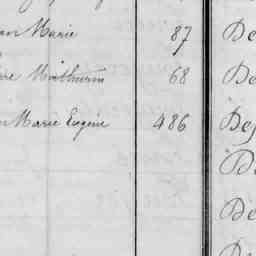 an Marie 87 De
re Mathurin 68 De
n Marie Eugène 486 De
D
De
De